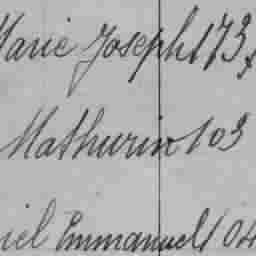 Marie Joseph 173
Mathurin 103
iel Emmanuel 104